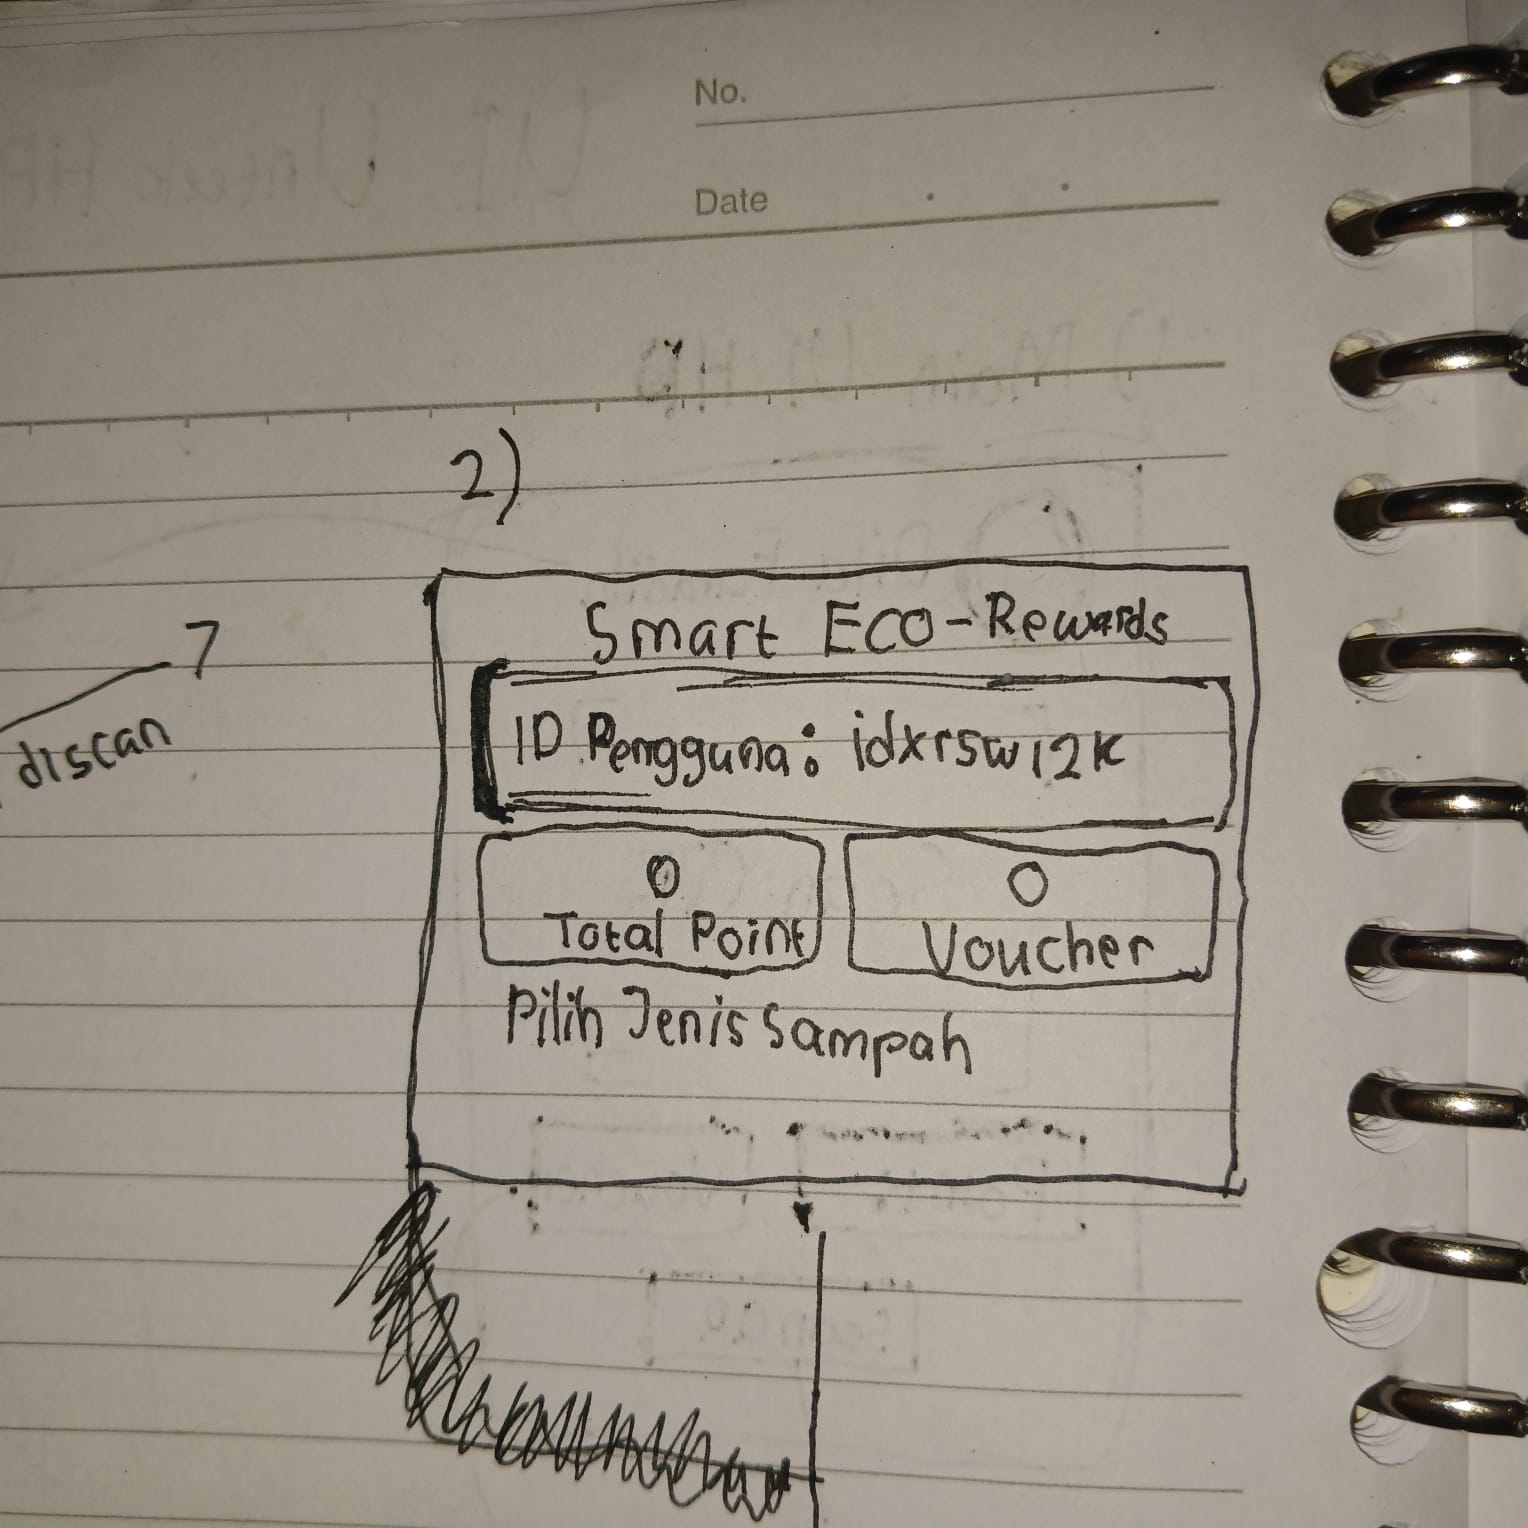 No.
Date
2)
diScan
Smart Eco-Rewards
ID Pengguna: idxrsw12k
0
Total Point
0
Voucher
Pilih Jenis Sampah